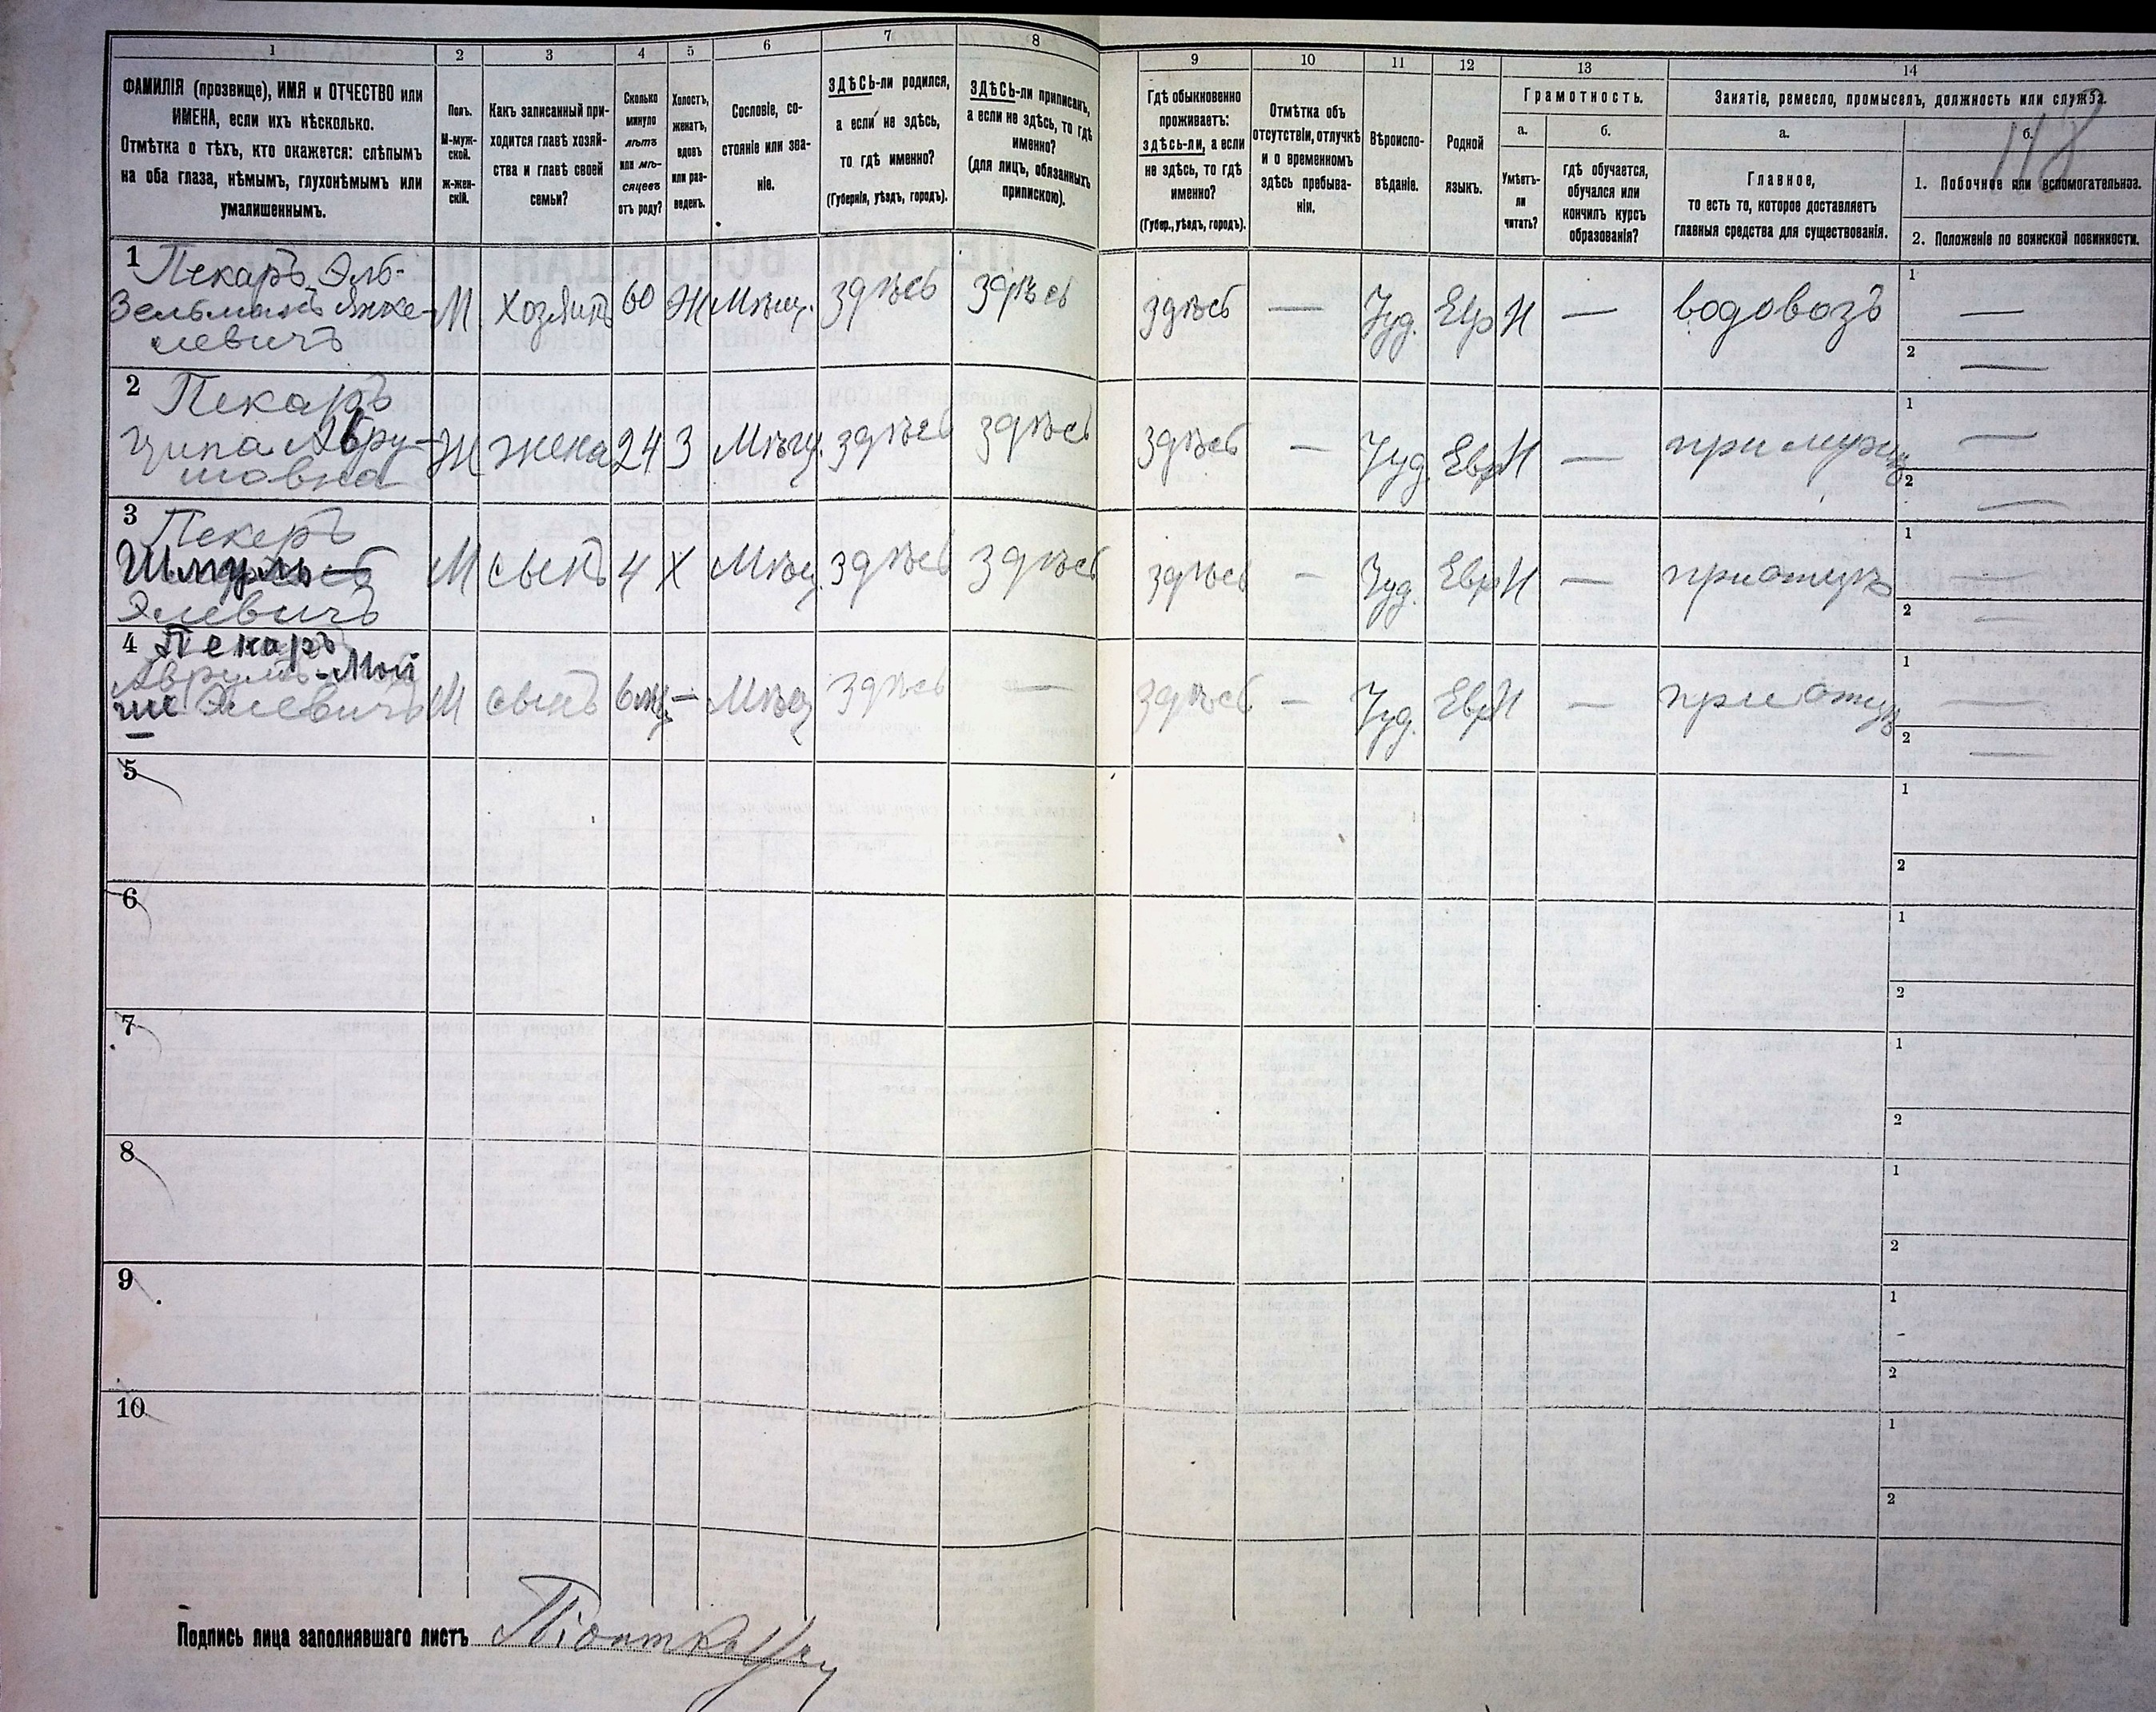 1 2 3 4 5 6 7 8 9 10 11 12 13 14
ФАМИЛІЯ (прозвище), ИМЯ и ОТЧЕСТВО или
ИМЕНА, если ихъ нѣсколько.
Отмѣтка о тѣхъ, кто окажется: слѣпымъ
на оба глаза, нѣмымъ, глухонѣмымъ или
умалишеннымъ.
Полъ.
М-муж-
ской.
ж-жен-
скій.
Какъ записанный при-
ходится главѣ хозяй-
ства и главѣ своей
семьи?
Сколько
минуло
лѣтъ
или мѣ-
сяцевъ
отъ роду?
Холостъ,
женатъ,
вдовъ
или раз-
веденъ.
Сословіе, со-
стояніе или зва-
ніе.
ЗДѢСЬ-ли родился,
а если не здѣсь,
то гдѣ именно?
(Губернія, уѣздъ, городъ).
ЗДѢСЬ-ли приписанъ,
а если не здѣсь, то гдѣ
именно?
(для лицъ, обязанныхъ
припискою).
Гдѣ обыкновенно
проживаетъ:
здѣсь-ли, а если
не здѣсь, то гдѣ
именно?
(Губер., уѣздъ, городъ).
Отмѣтка объ
отсутствіи, отлучкѣ
и о временномъ
здѣсь пребыва-
ніи.
Вѣроиспо-
вѣданіе.
Родной
языкъ.
Грамотность.
а.
Умѣетъ-
ли
читать?
б.
гдѣ обучается,
обучался или
кончилъ курсъ
образованія?
Занятіе, ремесло, промыселъ, должность или служба.
а.
Главное,
то есть то, которое доставляетъ
главныя средства для существованія.
б.
118
1. Побочное или вспомогательное.
2. Положеніе по воинской повинности.
1 Пекаръ Эль-
Зельманъ Янке-
левичъ
М Хозяинъ 60 Ж Мѣщ. здѣсь здѣсь здѣсь — Іуд. Евр Н — водовозъ
1 —
2 —
2 Пекаръ
Ципа Абру-
мовна
Ж жена 24 З Мѣщ. здѣсь здѣсь здѣсь — Іуд. Евр Н — при мужѣ
1 —
2 —
3 Пекеръ
Шмуль
Элевичъ
М сынъ 4 Х Мѣщ. здѣсь здѣсь здѣсь — Іуд. Евр Н — при отцѣ
1 —
2 —
4 Пекаръ
Аврумъ-Мой
ше Элевичъ
М сынъ 6 мц — Мѣщ здѣсь — здѣсь — Іуд. Евр Н — при отцѣ
1 —
2 —
5
1
2
6
1
2
7
1
2
8
1
2
9
1
2
10
1
2
Подпись лица заполнявшаго листъ